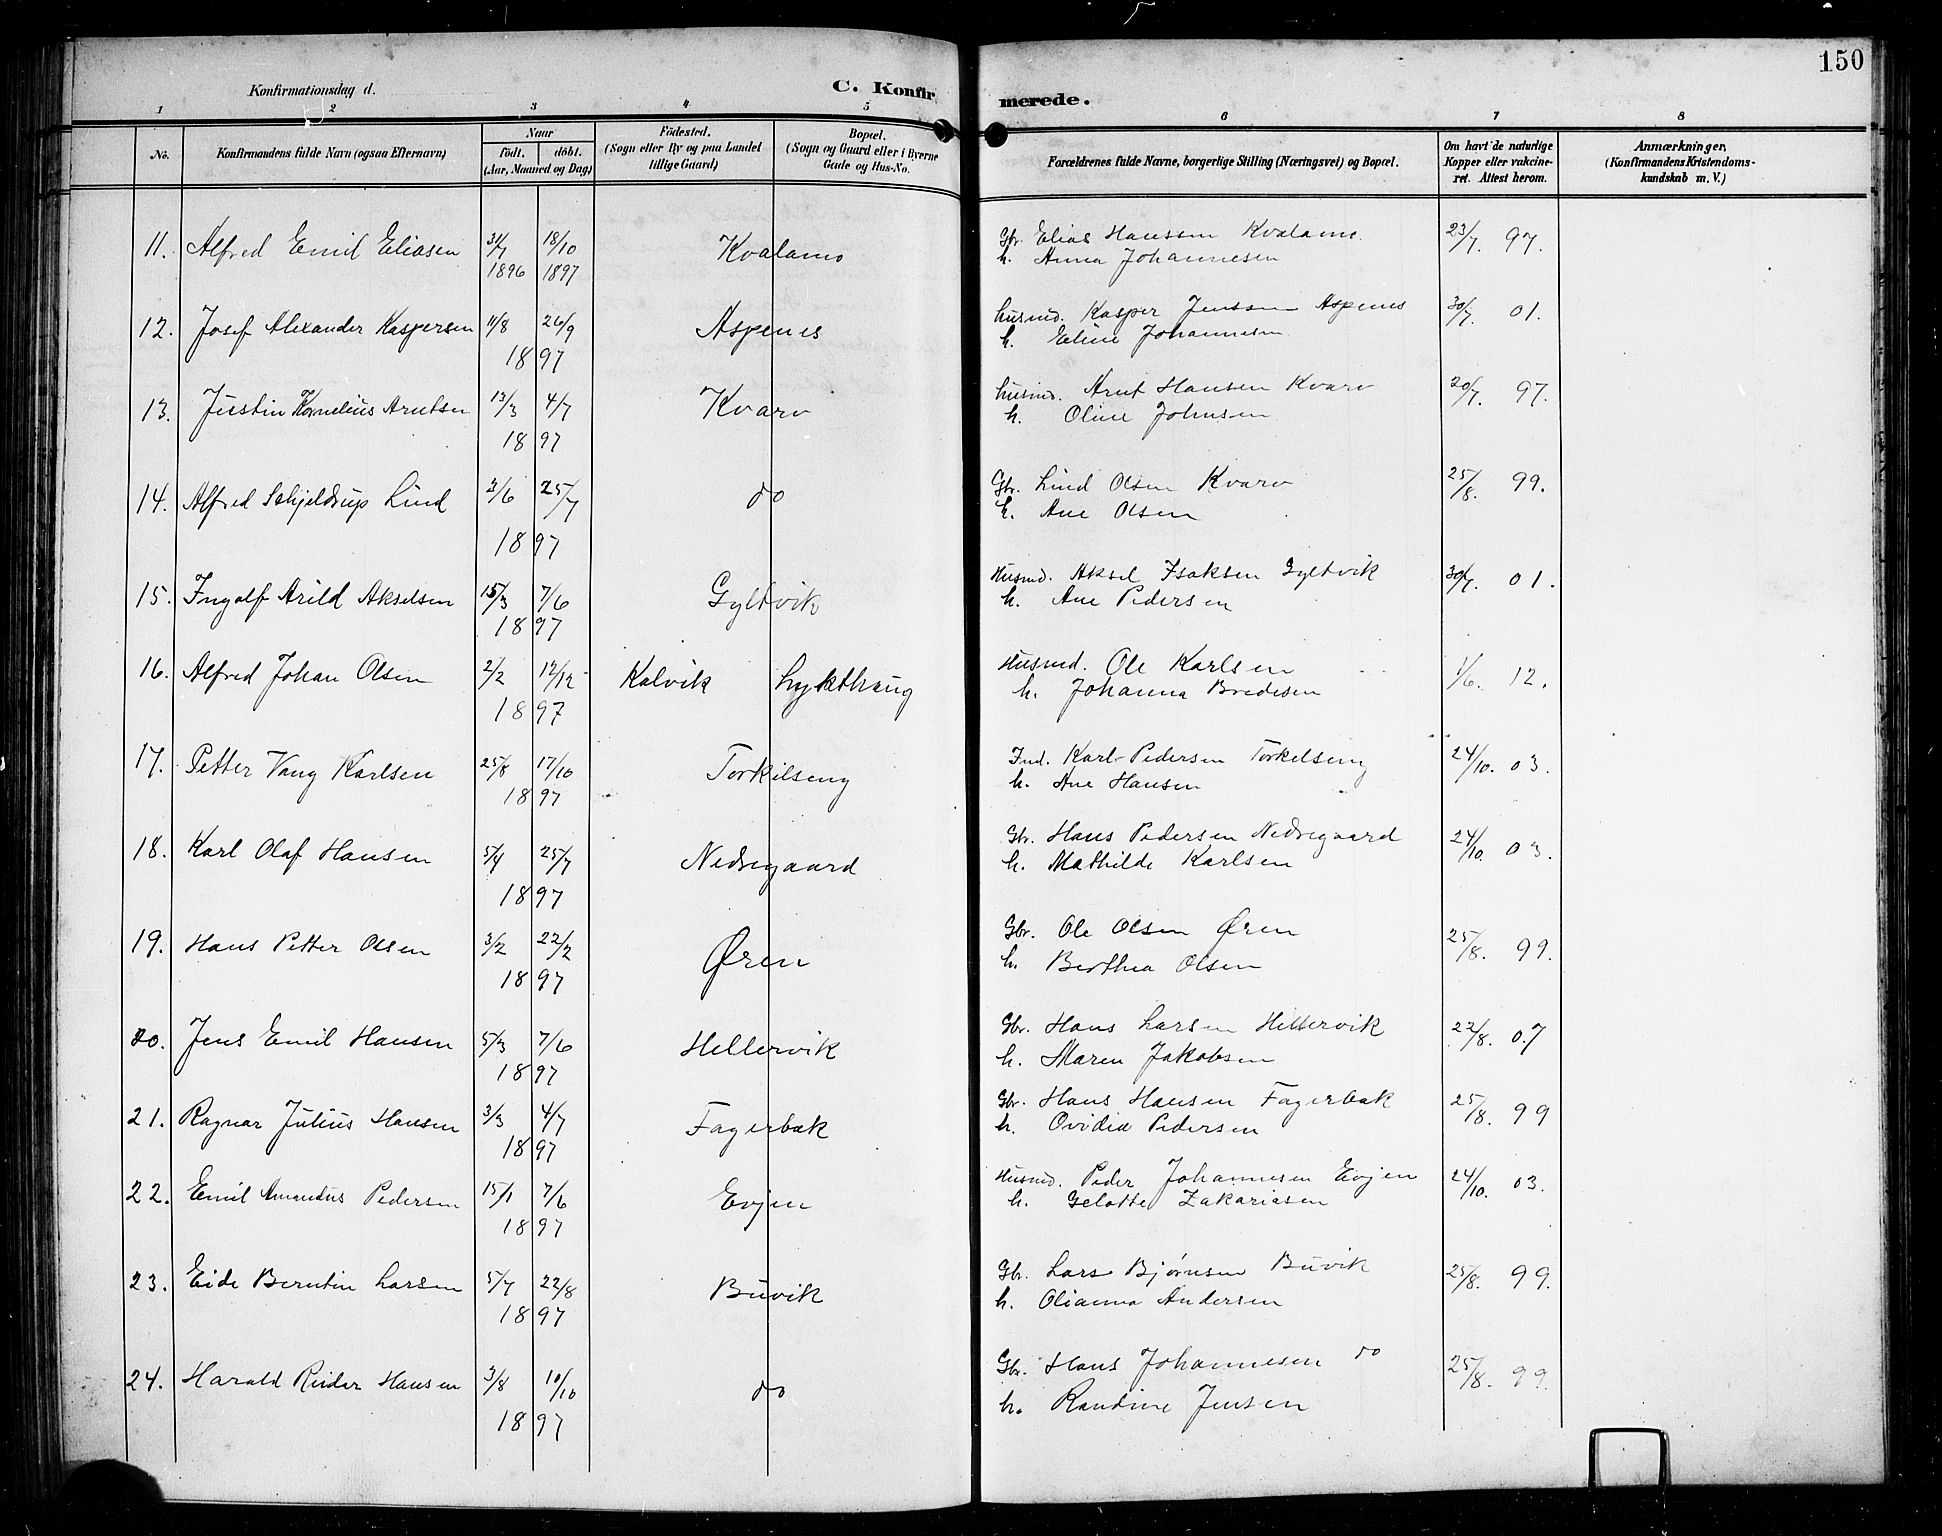 150
Konfirmationsdag d.
C. Konfir
merede.
1 2 3 4 5 6 7 8
No.
Konfirmandens fulde Navn (ogsaa Efternavn)
Naar
født. döbt.
(Aar, Maaned og Dag)
Födested.
(Sogn eller By og paa Landet
tillige Gaard)
Bopæl.
(Sogn og Gaard eller i Byerne
Gade og Hus-No.
Forældrenes fulde Navne, borgerlige Stilling (Næringsvei) og Bopæl.
Om havt de naturlige
Kopper eller vakcine-
ret. Attest herom.
Anmærkninger,
(Konfirmandens Kristendoms-
kundskab m. V.)
11. Alfred Emil Eliasen 31/7 18/10 Kvalamo Gbr. Elias Hanssen Kvalamo 23/7. 97.
1896 1897 h. Anna Johannesen
12. Josef Alexander Kaspersen 11/8 26/9 Aspenes Husmd. Kasper Jenssen Aspenes 30/7. 01.
1897 h. Eline Johannesen
13. Justin Kornelius Arntsen 13/3 4/7 Kvarv Husmd. Arnt Hansen Kvarv 20/7. 97.
1897 h. Oline Johnsen
14. Alfred Schjeldrup Lind 2/6 25/7 do Gbr. Lind Olsen Kvarv 25/8. 99.
1897 h. Ane Olsen
15. Ingolf Arild Akselsen 15/3 7/6 Gyltvik Husmd. Aksel Isaksen Gyltvik 30/7. 01.
1897 h. Ane Pedersen
16. Alfred Johan Olsen 2/2 12/12 Kalvik Lykthaug Husmd. Ole Karlsen 1/6. 12.
1897 h. Johanna Bredesen
17. Petter Vang Karlsen 25/8 17/10 Torkilseng Ind. Karl Pedersen Torkelseng 24/10. 03.
1897 h. Ane Hansen
18. Karl Olaf Hansen 5/4 25/7 Nedregaard Gbr. Hans Pedersen Nedregaard 24/10. 03.
1897 h. Mathilde Karlsen
19. Hans Petter Olsen 3/2 22/2 Øren Gbr. Ole Olsen Øren 25/8. 99.
1897 h. Berthea Olsen
20. Jens Emil Hansen 5/3 7/6 Hellervik Gbr. Hans Larsen Hellervik 22/8. 07
1897 h. Maren Jakobsen
21. Ragnar Julius Hansen 3/3 4/7 Fagerbak Gbr. Hans Hansen Fagerbak 25/8. 99
1897 h. Ovidia Pedersen
22. Emil Amandus Pedersen 15/1 7/6 Evjen Husmd. Peder Johannesen Evjen 24/10. 03.
1897 h. Gelotte Zakariasen
23. Eide Berntin Larsen 5/7 22/8 Buvik Gbr. Lars Bjørnsen Buvik 25/8. 99.
1897 h. Olianna Andersen
24. Harald Reider Hansen 3/8 10/10 do Gbr. Hans Johannesen do 25/8. 99.
1897 h. Randine Jensen